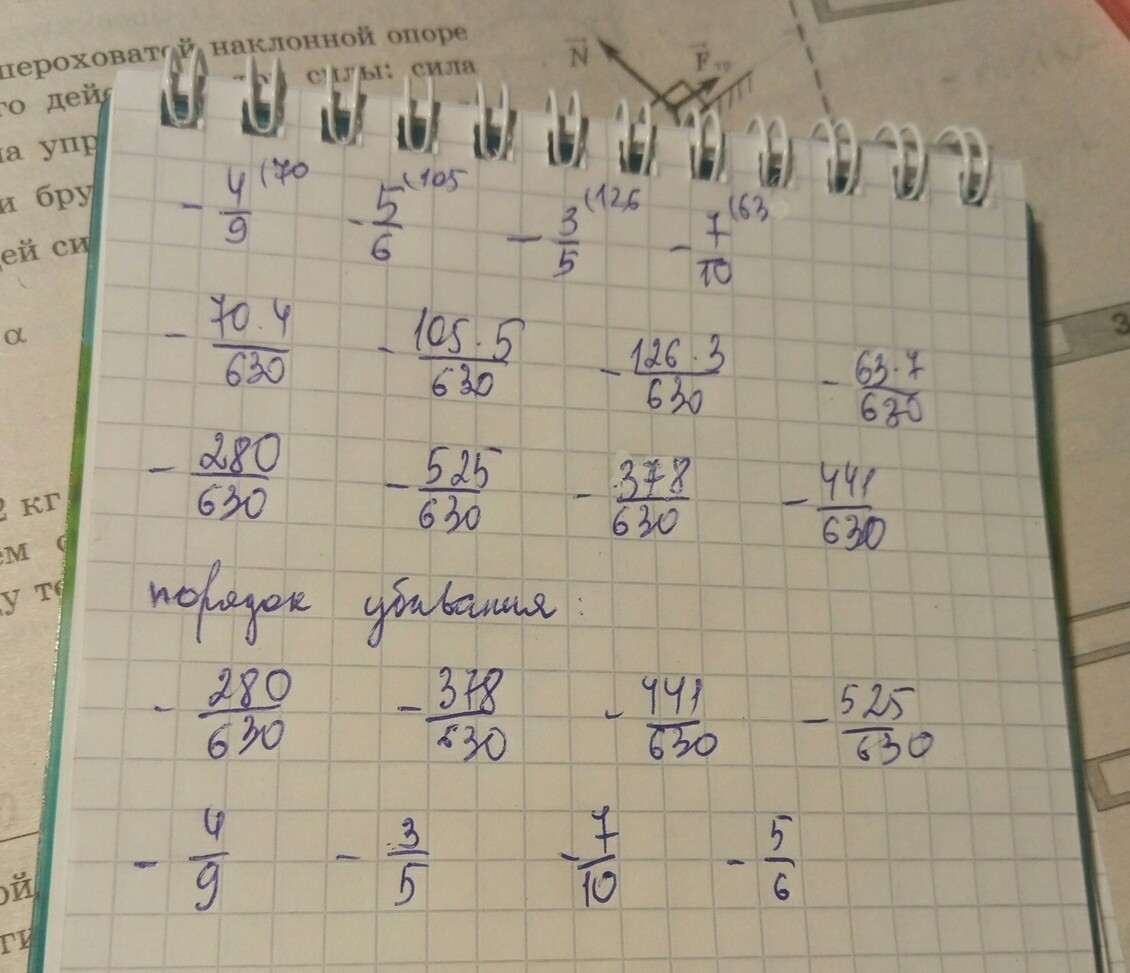 шероховатой наклонной опоре
силы: сила
N F тр
α
2 кг
- 4/9 (70 - 5/6 (105 - 3/5 (126 - 7/10 (63
- 70·4/630 - 105·5/630 - 126·3/630 - 63·7/630
- 280/630 - 525/630 - 378/630 - 441/630
порядок убивания:
- 280/630 - 378/630 - 441/630 - 525/630
- 4/9 - 3/5 - 7/10 - 5/6